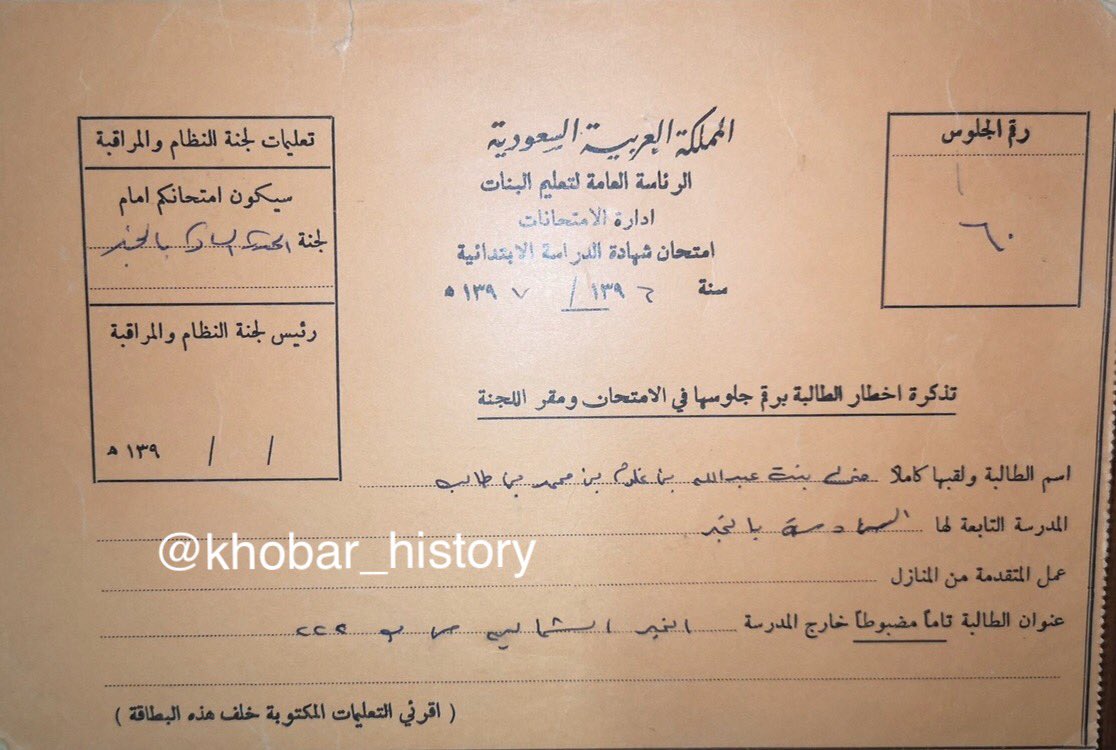 رقم الجلوس
٦٠
المملكة العربية السعودية
الرئاسة العامة لتعليم البنات
ادارة الامتحانات
امتحان شهادة الدراسة الابتدائية
سنة ١٣٩٦ / ١٣٩٧ ه
تعليمات لجنة النظام والمراقبة
سيكون امتحانكم امام
لجنة بالخبر
رئيس لجنة النظام والمراقبة
/ / ١٣٩ ه
تذكرة اخطار الطالبة برقم جلوسها في الامتحان ومقر اللجنة
اسم الطالبة ولقبها كاملا بنت عبدالله بن غلوم بن محمد بن طالب
المدرسة التابعة لها السادسة بالخبر
@khobar_history
عمل المتقدمة من المنازل
عنوان الطالبة تاماً مضبوطاً خارج المدرسة الخبر الشمالي ص ب ٢٢٢
( اقرئي التعليمات المكتوبة خلف هذه البطاقة )